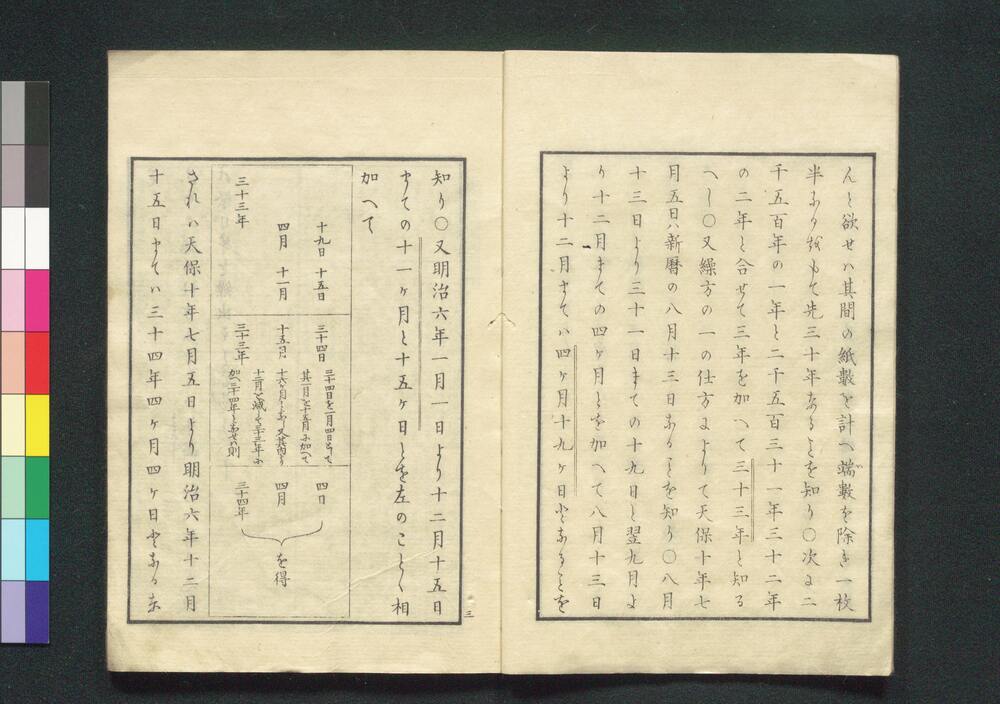 んと欲せハ其間の紙數を計へ端數を除き一枚
半あるを以もて先三十年あることを知り○次よ二
千五百年の一年と二千五百三十一年三十二年
の二年と合せて三年を加へて三十三年と知る
へし○又繰方の一の仕方によりて天保十年七
月五日ハ新暦の八月十三日あることを知り○八月
十三日より三十一日まての十九日と翌九月よ
り十二月まての四ヶ月とを加へて八月十三日
より十二月まてハ四ヶ月十九ヶ日とあることを
知り○又明治六年一月一日より十二月十五日
まての十一ヶ月と十五ヶ日とを左のことく相
加へて
十九日 十五日
四月 十一月
三十三年
三十四日
三十四日を一月四日として
其一月と十五月に加へて
十五月
十六ヶ月とあし又其内より
十二月を減して三十三年に
加へ三十四年とあせハ則
三十三年
四日
四月
三十四年
を得
されハ天保十年七月五日より明治六年十二月
十五日まてハ三十四年四ヶ月四ヶ日とある
三